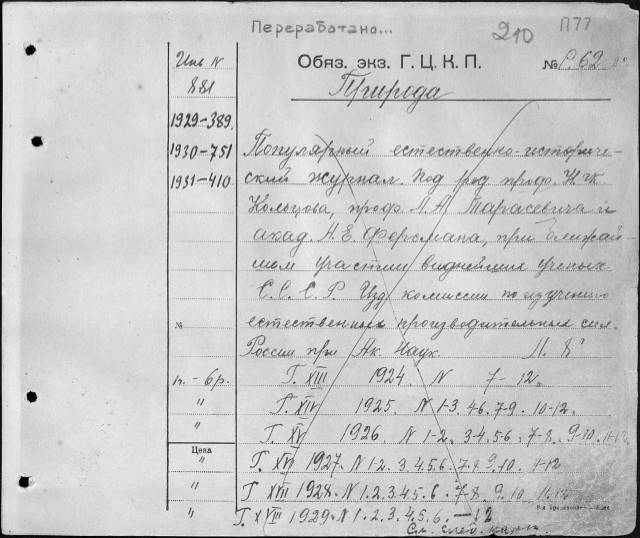 Переработано...
210 П77
Обяз. экз. Г. Ц. К. П. № Р.62
Инв N
881
Природа
1929-389
1930-751
1931-410
Популярный естественно-историче-
ский журнал. Под ред проф. Н. К.
Кольцова, проф. Л. А. Тарасевича и
акад. А. Е. Ферсмана, при ближай-
шем участии виднейших ученых
С. С. С. Р. Изд. комиссии по изучению
№ естественных производительных сил
России при Ак. Наук. Л. 8°
п. - 6р. Г. XIII 1924. N 7-12.
" Г. XIV 1925. N 1-3. 4-6. 7-9. 10-12.
" Г. XV 1926. N 1-2. 3-4. 5-6. 7-8. 9-10. 11-12
Цена
" Г. XVI 1927. N 1-2. 3. 4. 5. 6. 7-8. 9. 10. 11-12
" Г XVII 1928. N 1. 2. 3. 4. 5. 6. 7-8. 9. 10. 11. 12
" Г. XVIII 1929. N 1. 2. 3. 4. 5. 6. -12
См. след. карт.